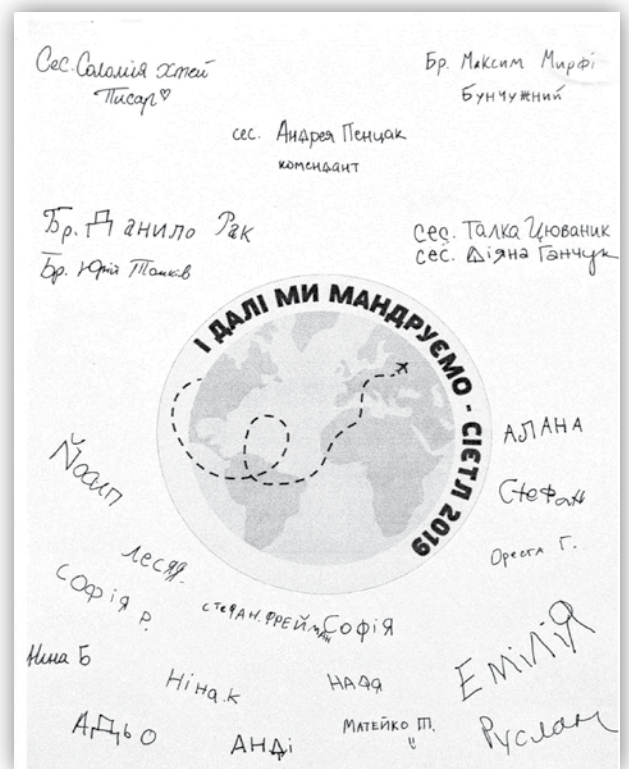 Сес. Соломія Хмей
Писар♡
Бр. Максим Мирфі
Бунчужний
сес. Андрея Пенцак
комендант
Бр. Данило Рак
Бр. Юрій
сес. Талка Цюваник
сес. Діяна Ганчук
І ДАЛІ МИ МАНДРУЄМО - СІЕТЛ 2019
Йосип
АЛАНА
Стефан
Ореста Г.
Леся.
СОФІЯ Р.
СТЕФАН. ФРЕЙМАН
СОФІЯ
ЕМІЛІЯ
Нина Б
Ніна.К
НАДЯ
АДЬО
АНДІ
МАТЕЙКО П.
Руслан